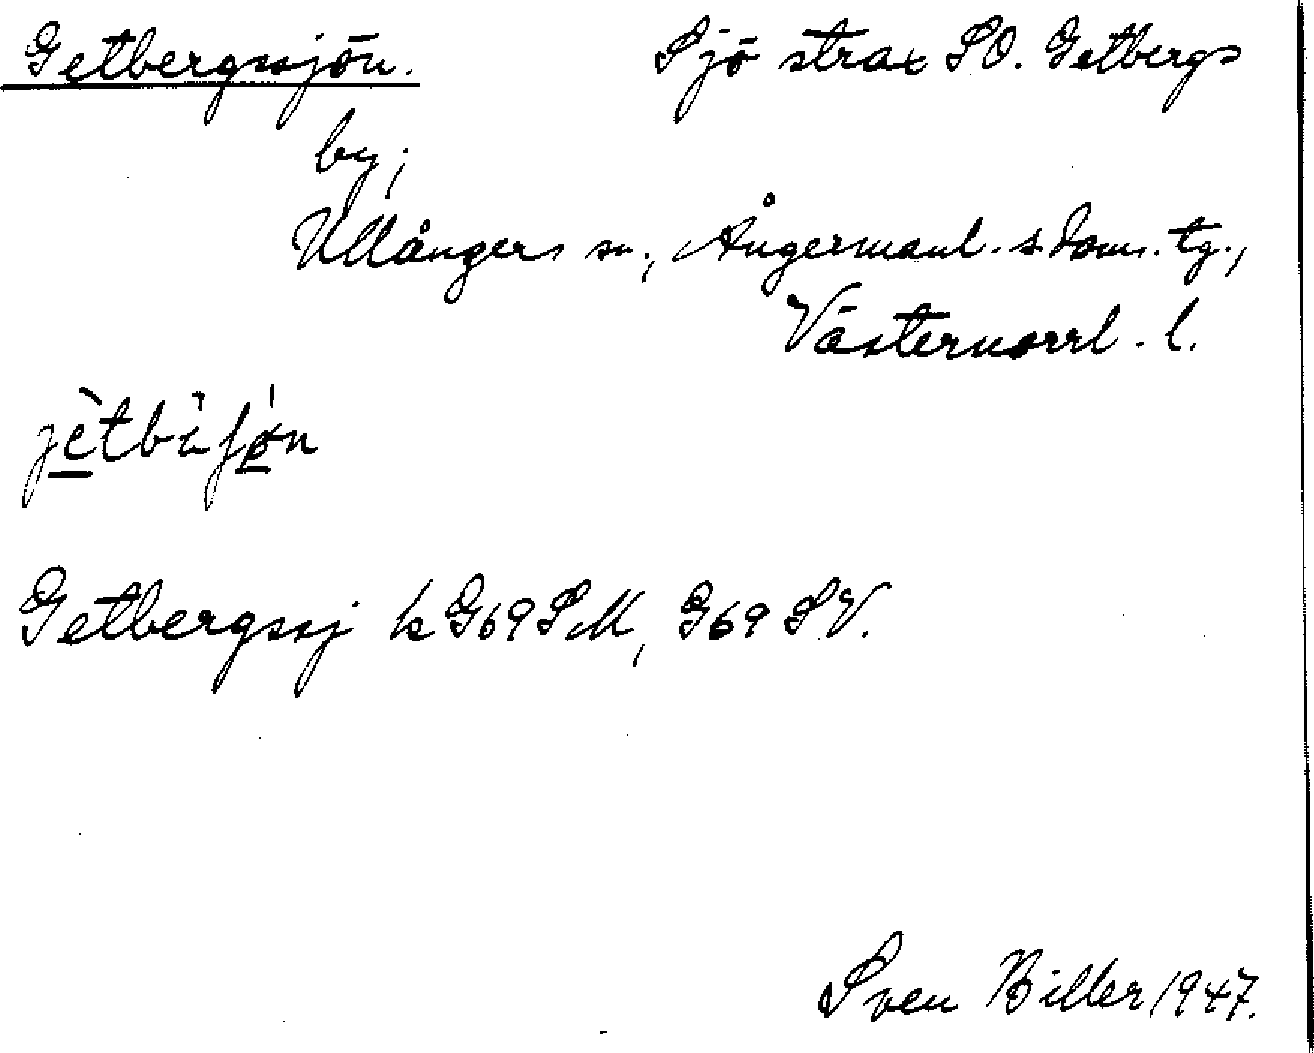 Getbergssjön. Sjö strax SO. Getbergs
by;
Ullångers sn., Ångermanl. s. doms. tg.,
Västernorrl. l.
Getbergssj k G69SM, G69 SV.
Sven Biller 1947.